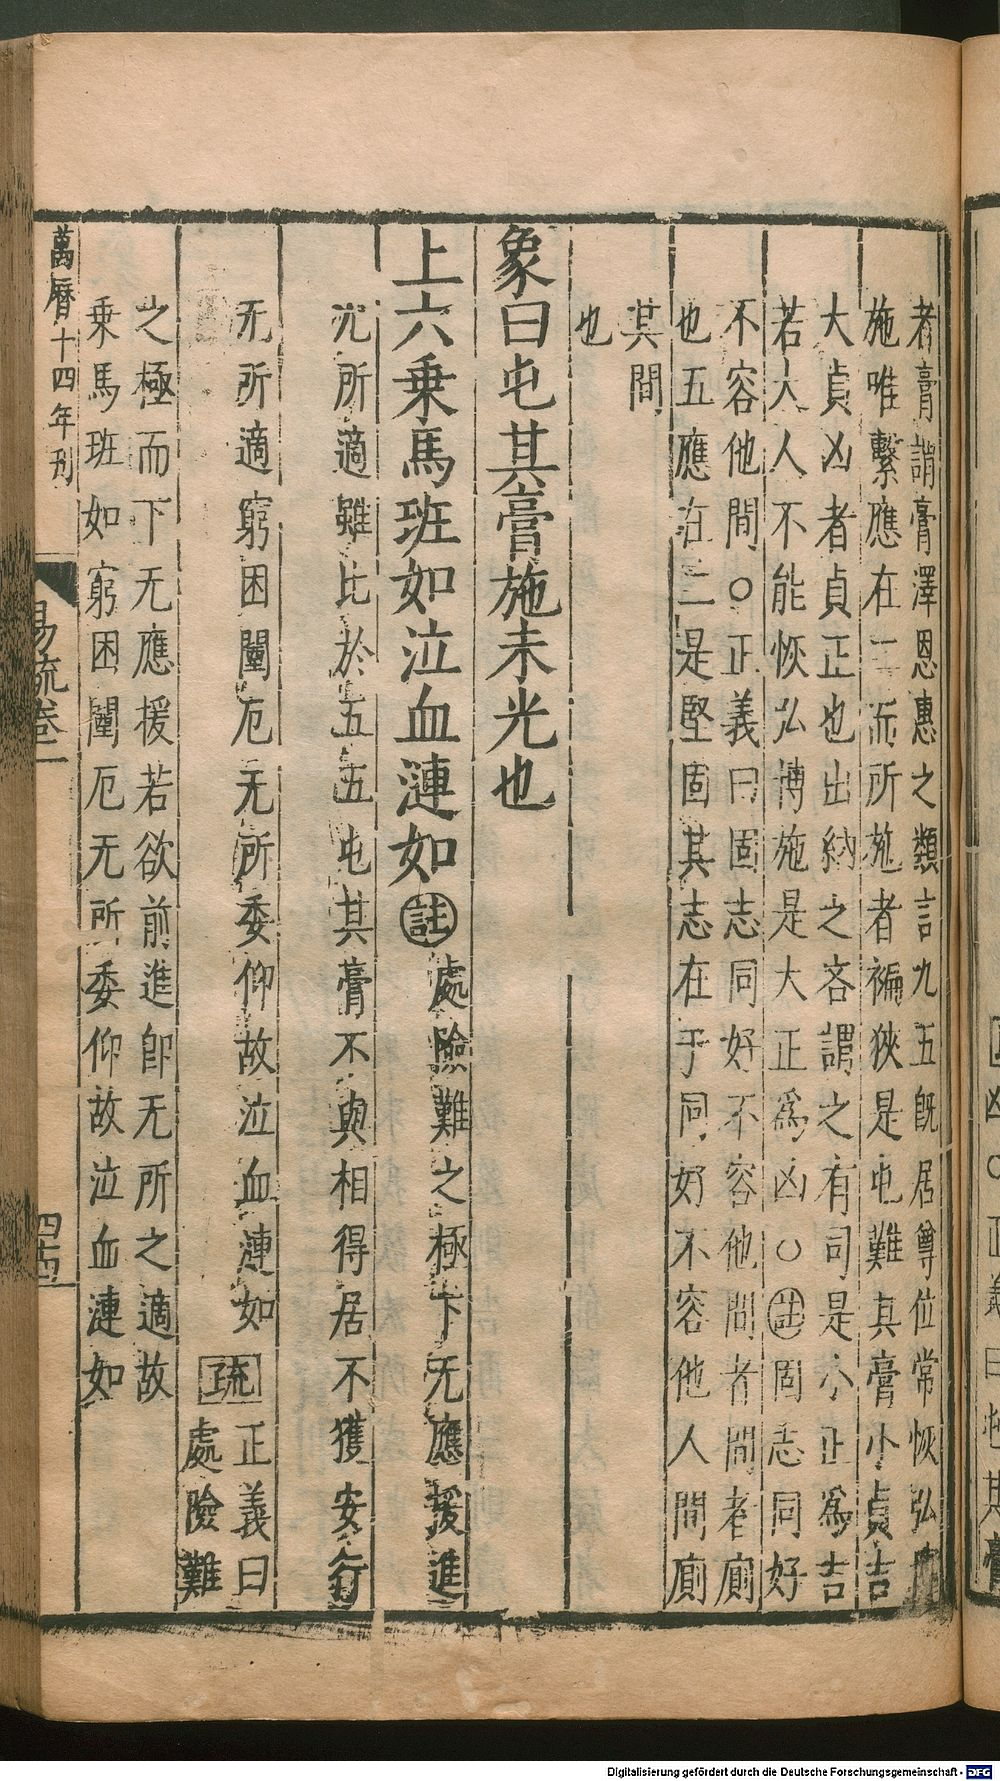 者膏謂膏澤恩惠之類言九五旣居尊位當恢弘博
施唯繫應在二而所施者褊狹是屯難其膏小貞吉
大貞凶者貞正也出納之吝謂之有司是小正爲吉
若大人不能恢弘博施是大正爲凶○註固志同好
不容他間○正義曰固志同好不容他間者間者廁
也五應在二是堅固其志在于同好不容他人間廁
其間
也
象曰屯其膏施未光也
上六乘馬班如泣血漣如註處險難之極下无應援進
无所適雖比於五五屯其膏不與相得居不獲安行
无所適窮困闉厄无所委仰故泣血漣如疏正義曰
處險難
之極而下无應援若欲前進卽无所之適故
乘馬班如窮困闉厄无所委仰故泣血漣如
萬曆十四年刊
易疏卷一
四十四
凶○正義曰屯其膏
Digitalisierung gefördert durch die Deutsche Forschungsgemeinschaft - DFG